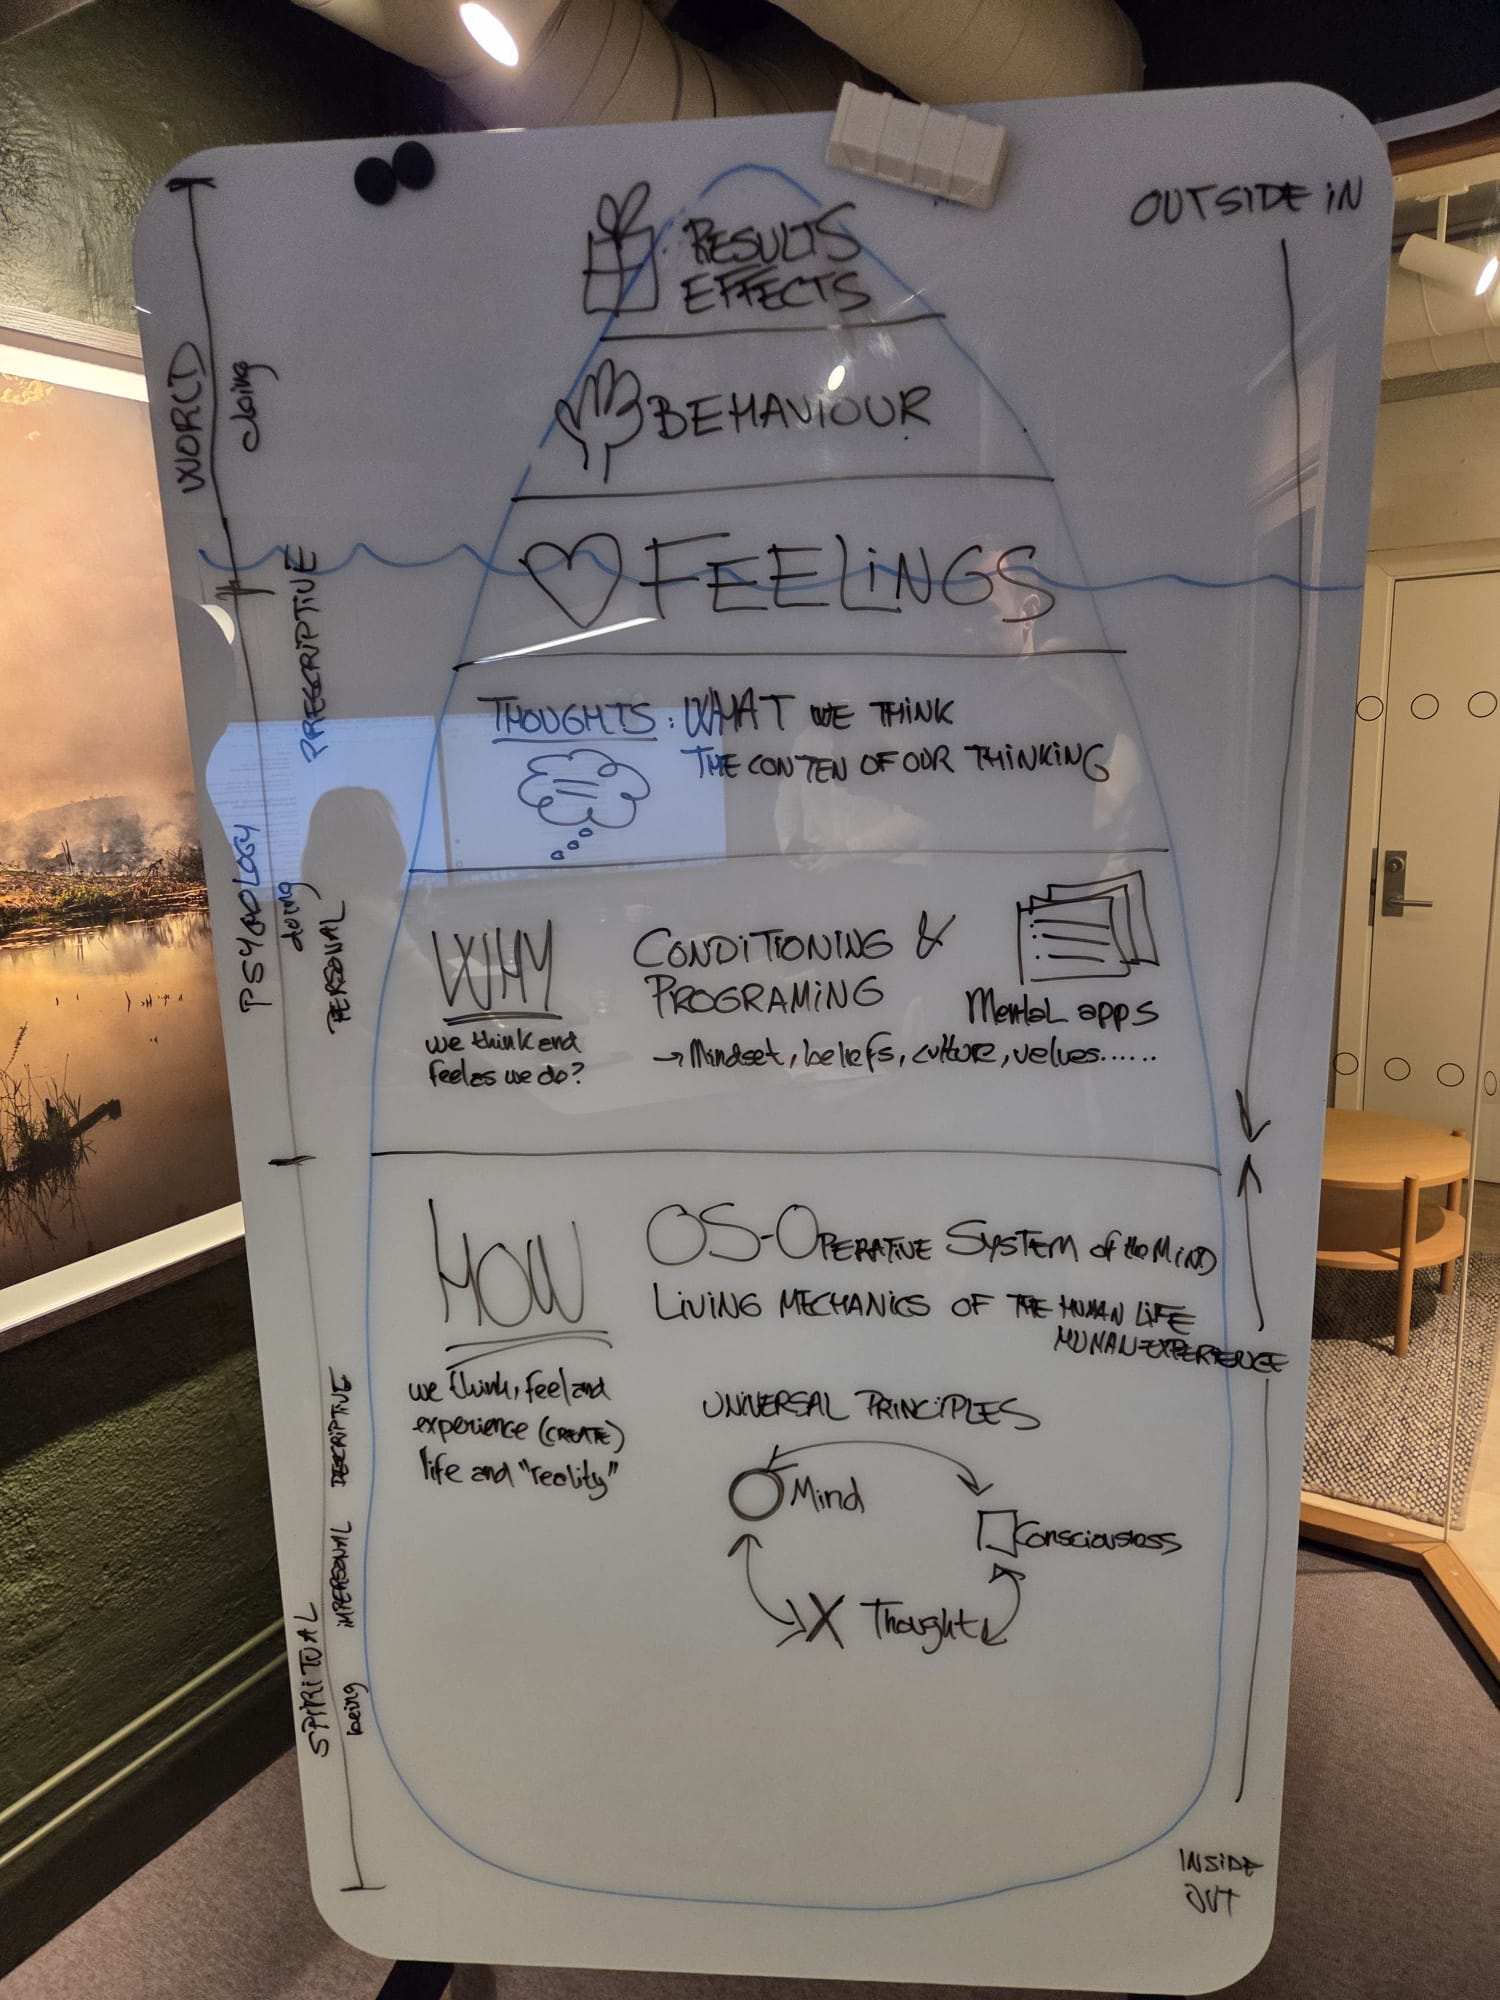 OUTSIDE IN
RESULTS
EFFECTS
WORLD
doing
BEHAVIOUR
FEELINGS
PRESCRIPTIVE
THOUGHTS: WHAT WE THINK
THE CONTEN OF OUR THINKING
PSYCHOLOGY
doing
PERSONAL
WHY
we think and
feel as we do?
CONDITIONING &
PROGRAMING
Mental apps
→ Mindset, beliefs, culture, values......
HOW
we think, feel and
experience (CREATE)
life and "reality"
OS-OPERATIVE SYSTEM of the MIND
LIVING MECHANICS OF THE HUMAN LIFE
HUMAN EXPERIENCE
UNIVERSAL PRINCIPLES
Mind
Consciousness
X Thought
DESCRIPTIVE
IMPERSONAL
SPIRITUAL
being
INSIDE
OUT